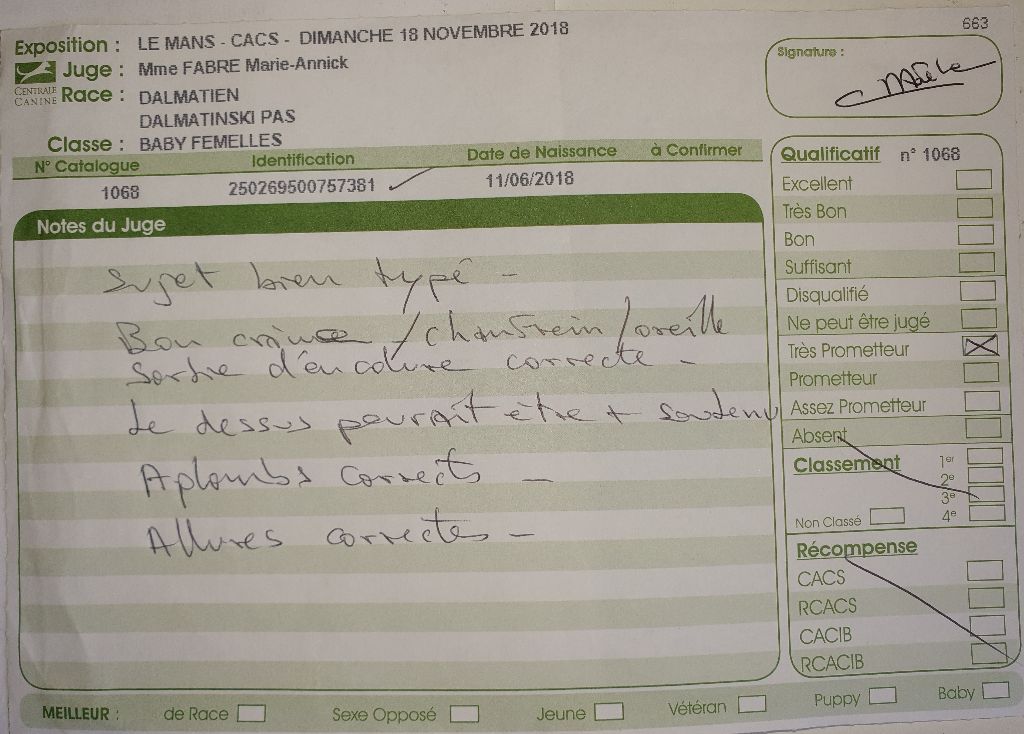 663
Exposition : LE MANS - CACS - DIMANCHE 18 NOVEMBRE 2018
Juge : Mme FABRE Marie-Annick
CENTRALE CANINE
Race : DALMATIEN
DALMATINSKI PAS
Classe : BABY FEMELLES
Signature :
N° Catalogue Identification Date de Naissance à Confirmer
1068 250269500757381 11/06/2018
Notes du Juge
Sujet bien typé -
Bon crâne / chanfrein / oreille
Sortie d'encolure correcte -
Le dessus pourrait être + soutenu
Aplombs corrects -
Allures correctes -
Qualificatif n° 1068
Excellent
Très Bon
Bon
Suffisant
Disqualifié
Ne peut être jugé
Très Prometteur
Prometteur
Assez Prometteur
Absent
Classement 1er
2e
3e
Non Classé 4e
Récompense
CACS
RCACS
CACIB
RCACIB
MEILLEUR : de Race Sexe Opposé Jeune Vétéran Puppy Baby